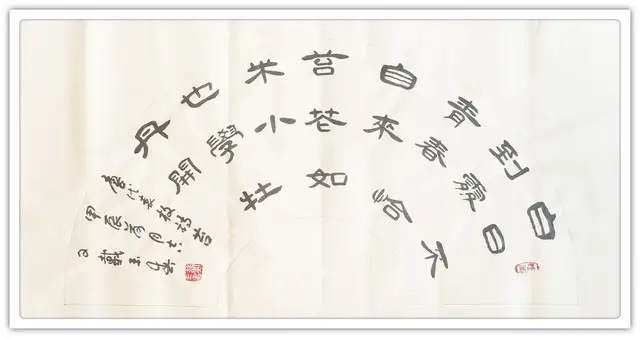 白日不
到處
青春恰
自來
苔花如
米小
也學牡
丹開
唐代袁枚詩苔
甲辰荷月
戴玉